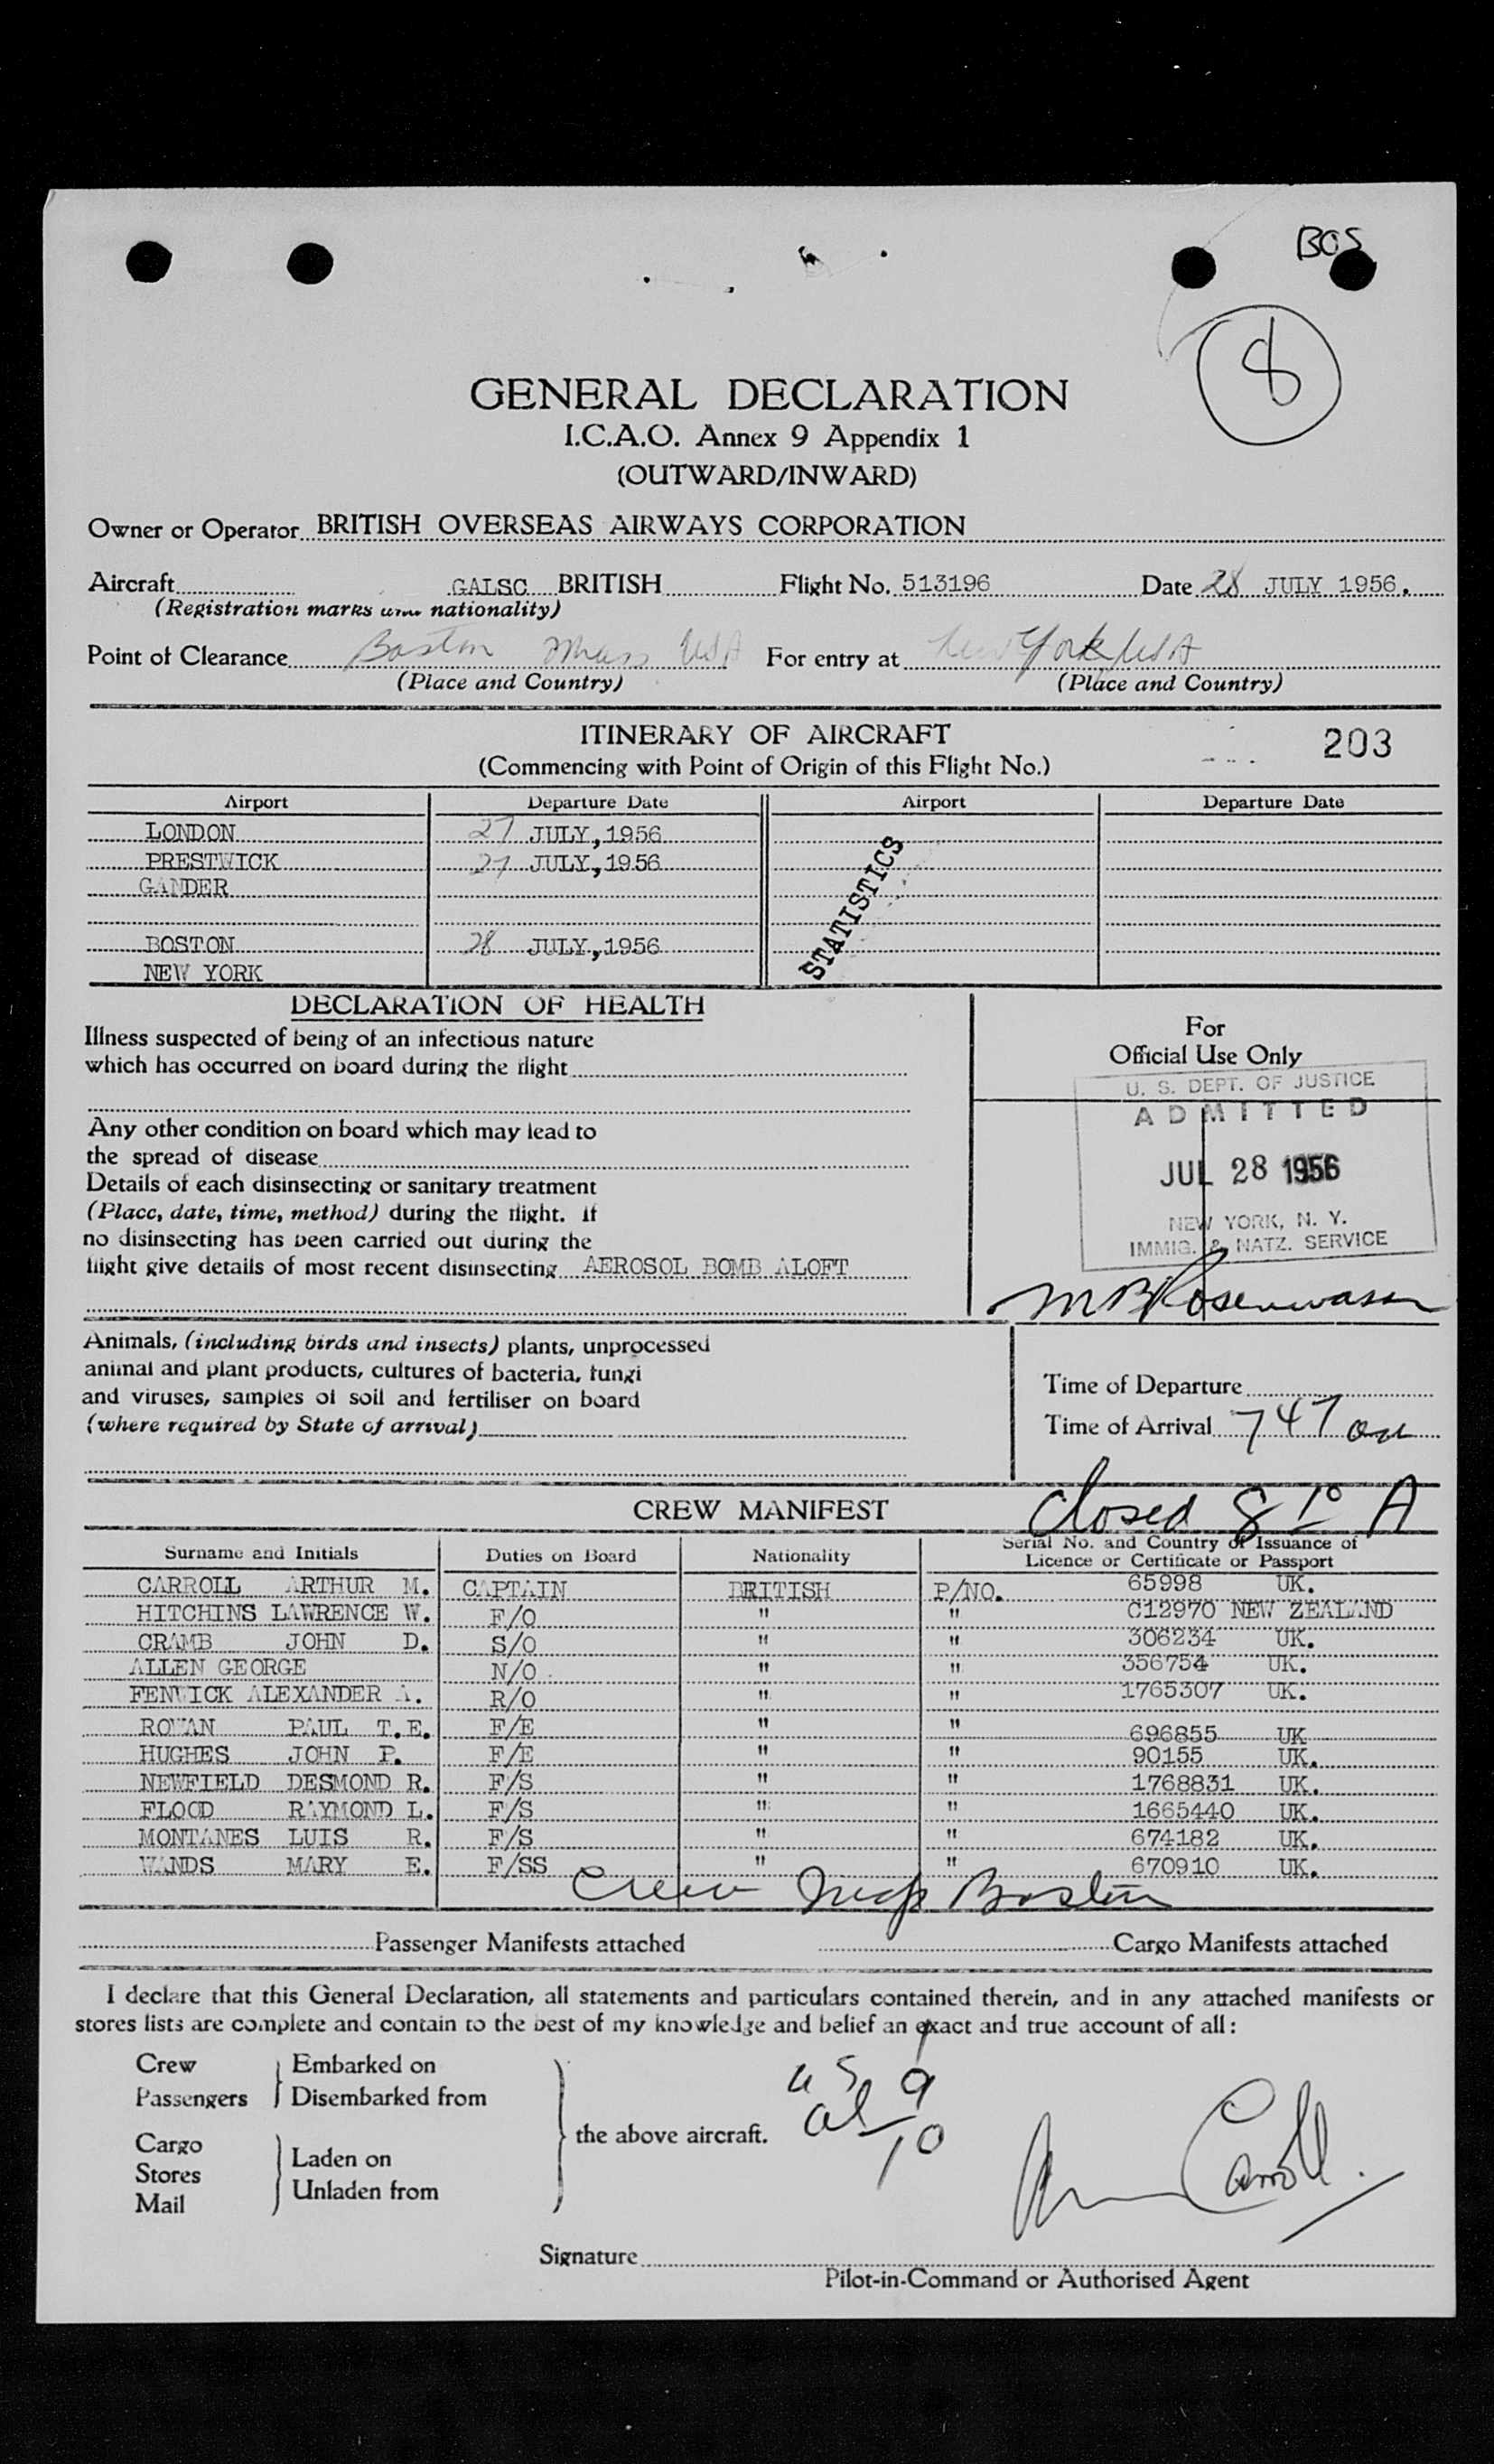 BOS
8
GENERAL DECLARATION
I.C.A.O. Annex 9 Appendix 1
(OUTWARD/INWARD)
Owner or Operator BRITISH OVERSEAS AIRWAYS CORPORATION
Aircraft GALSC BRITISH Flight No. 513196 Date 28 JULY 1956.
(Registration marks and nationality)
Point of Clearance Boston Mass USA For entry at New York USA
(Place and Country) (Place and Country)
ITINERARY OF AIRCRAFT 203
(Commencing with Point of Origin of this Flight No.)
Airport Departure Date Airport Departure Date
LONDON 27 JULY, 1956
PRESTWICK 27 JULY, 1956
GANDER
BOSTON 28 JULY, 1956
NEW YORK
STATISTICS
DECLARATION OF HEALTH
Illness suspected of being of an infectious nature
which has occurred on board during the flight
Any other condition on board which may lead to
the spread of disease
Details of each disinsecting or sanitary treatment
(Place, date, time, method) during the flight. If
no disinsecting has been carried out during the
flight give details of most recent disinsecting AEROSOL BOMB ALOFT
For
Official Use Only
U. S. DEPT. OF JUSTICE
ADMITTED
JUL 28 1956
NEW YORK, N. Y.
IMMIG. & NATZ. SERVICE
Animals, (including birds and insects) plants, unprocessed
animal and plant products, cultures of bacteria, fungi
and viruses, samples of soil and fertiliser on board
(where required by State of arrival)
Time of Departure
Time of Arrival 747
CREW MANIFEST Closed 8 10 A
Surname and Initials Duties on Board Nationality Serial No. and Country of Issuance of
Licence or Certificate or Passport
CARROLL ARTHUR M. CAPTAIN BRITISH P/NO. 65998 UK.
HITCHINS LAWRENCE W. F/O " " C12970 NEW ZEALAND
CRAMB JOHN D. S/O " " 306234 UK.
ALLEN GEORGE N/O " " 356754 UK.
FENWICK ALEXANDER A. R/O " " 1765307 UK.
ROWAN PAUL T.E. F/E " " 696855 UK
HUGHES JOHN P. F/E " " 90155 UK.
NEWFIELD DESMOND R. F/S " " 1768831 UK.
FLOOD RAYMOND L. F/S " " 1665440 UK.
MONTANES LUIS R. F/S " " 674182 UK.
WANDS MARY E. F/SS " " 670910 UK.
Crew Insp Boston
Passenger Manifests attached Cargo Manifests attached
I declare that this General Declaration, all statements and particulars contained therein, and in any attached manifests or
stores lists are complete and contain to the best of my knowledge and belief an exact and true account of all:
Crew Embarked on
Passengers Disembarked from
Cargo Laden on
Stores
Mail Unladen from
the above aircraft.
US 9
al 10
Carroll
Signature
Pilot-in-Command or Authorised Agent